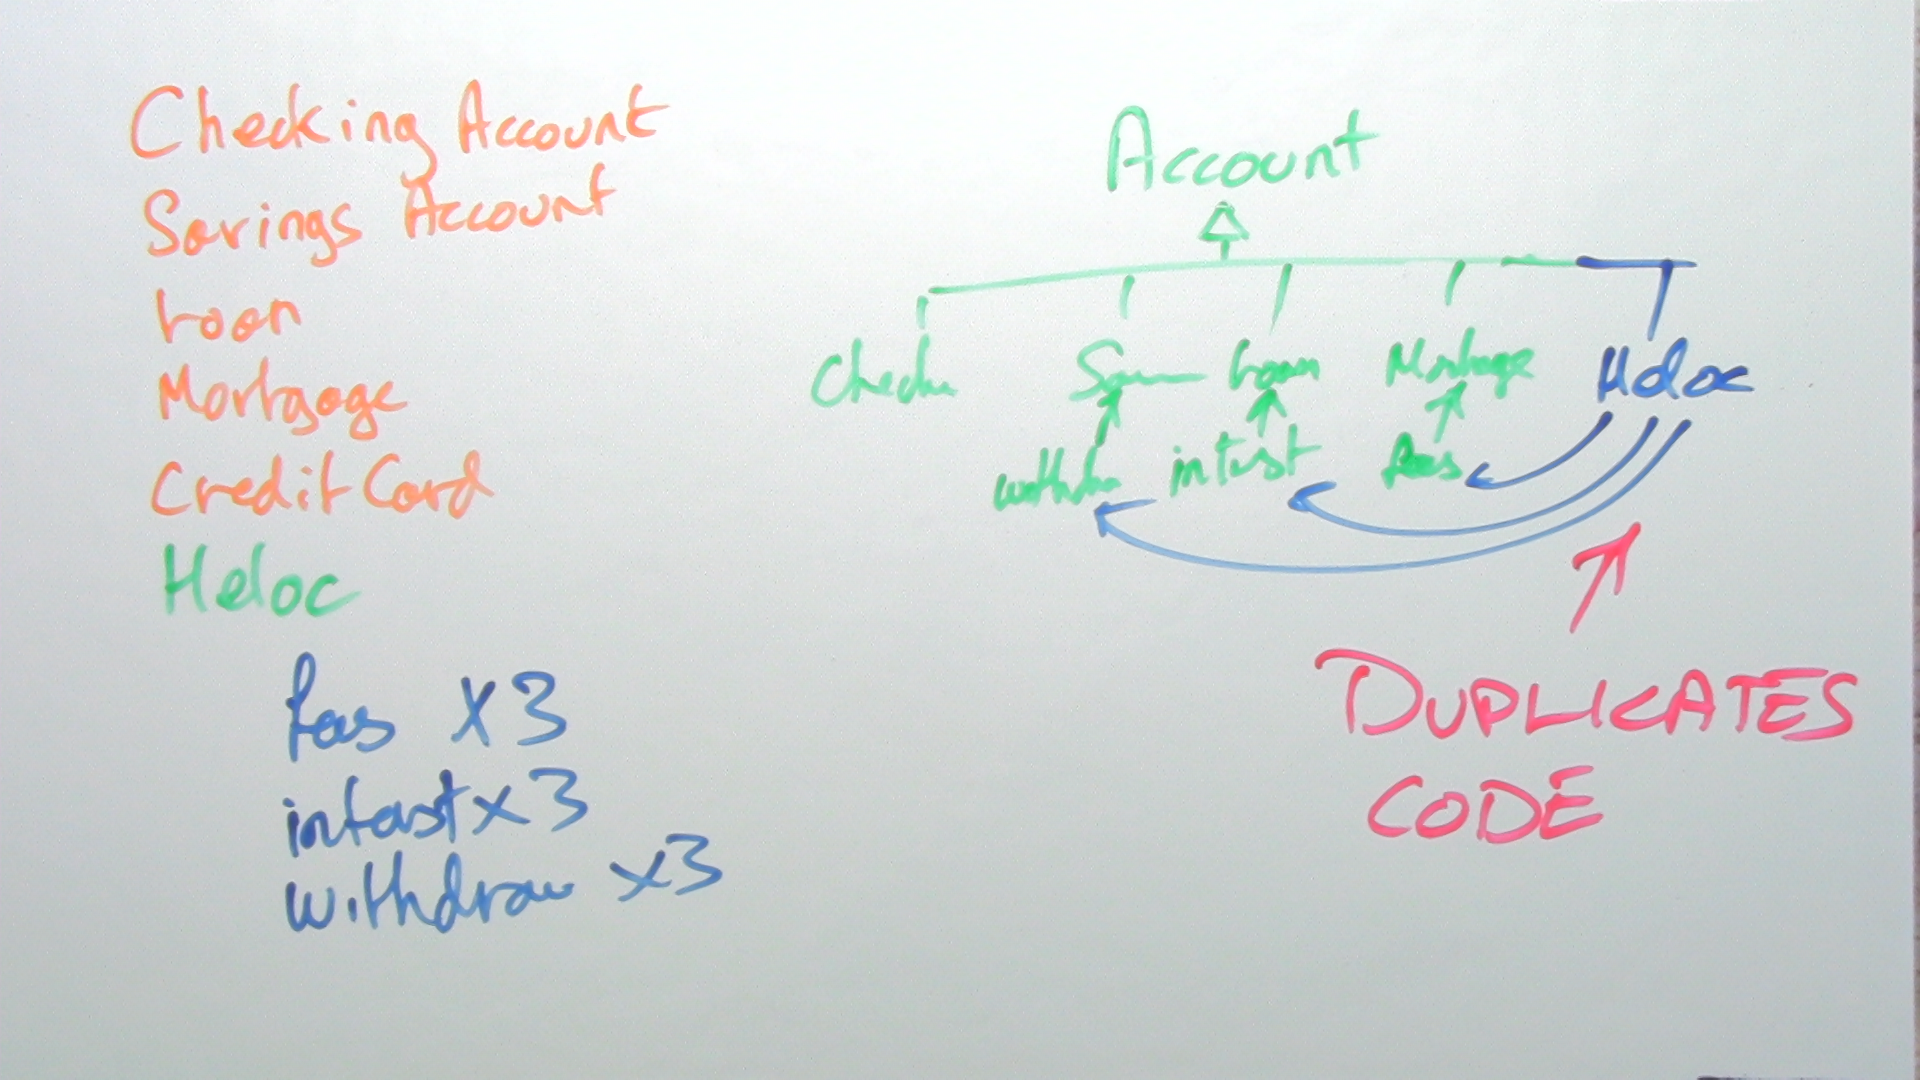 Checking Account
Savings Account
Loan
Mortgage
Credit Card
Heloc
fees x3
interest x3
withdraw x3
Account
Loan Mortgage Heloc
interest fees
DUPLICATES
CODE